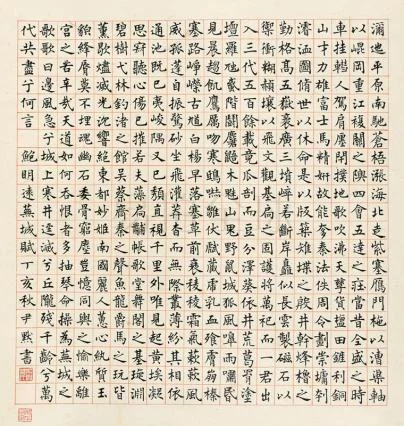 瀰迆平原南馳蒼梧漲海北走紫塞鴈門柂以漕渠軸
以崐岡重江複關之隩四會五達之莊當昔全盛之時
車挂轊人駕肩廛閈撲地歌吹沸天孳貨鹽田鏟利銅
山才力雄富士馬精妍故能奓秦法佚周令劃崇墉刳
濬洫圖脩世以休命是以版築雉堞之殷井幹烽櫓之
勤格高五嶽袤廣三墳崪若斷岸矗似長雲製磁石以
禦衝糊赬壤以飛文觀基扃之固護將萬祀而一君出
入三代五百餘載竟瓜剖而豆分澤葵依井荒葛罥塗
壇羅虺蜮階鬬麏鼯木魅山鬼野鼠城狐風嗥雨嘯昏
見晨趨飢鷹厲吻寒鴟嚇雛伏虣藏虎乳血飡膚崩榛
塞路崢嶸古馗白楊早落塞草前衰稜稜霜氣蔌蔌風
威孤蓬自振驚砂坐飛灌莽杳而無際叢薄紛其相依
通池既已夷峻隅又已頹直視千里外唯見起黃埃凝
思寂聽心傷已摧若夫藻扃黼帳歌堂舞閣之基琁淵
碧樹弋林釣渚之館吳蔡齊秦之聲魚龍爵馬之玩皆
薰歇燼滅光沉響絕東都妙姬南國麗人蕙心紈質玉
貌絳脣莫不埋魂幽石委骨窮塵豈憶同輿之愉樂離
宮之苦辛哉天道如何吞恨者多抽琴命操為蕪城之
歌歌曰邊風急兮城上寒井逕滅兮丘隴殘千齡兮萬
代共盡兮何言 鮑明遠蕪城賦 丁亥秋尹默書